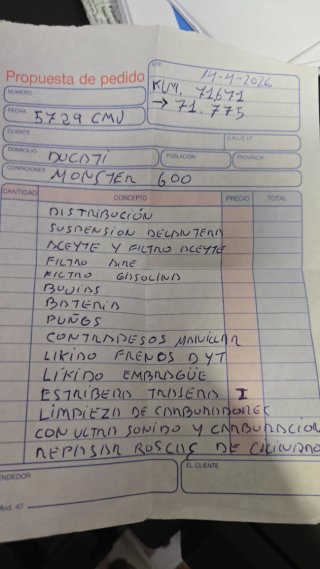 ATE
14-4-2026
Propuesta de pedido
KLM. 71671
NUMERO
→ 71.775
FECHA
5729 CMJ
CLIENTE
D.N.I./C.I.F.
DOMICILIO
POBLACIÓN
PROVINCIA
DUCATI
CONDICIONES
MONSTER 600
CANTIDAD CONCEPTO PRECIO TOTAL
DISTRIBUCIÓN
SUSPENSION DELANTERA
ACEYTE Y FILTRO ACEYTE
FILTRO AIRE
FILTRO GASOLINA
BUJIAS
BATERIA
PUÑOS
CONTRAPESOS MANILLAR
LIKIDO FRENOS D Y T
LÍKIDO EMBRAGÜE
ESTRIBERA TRASERA I
LIMPIEZA DE CARBURADORES
CON ULTRA SONIDO Y CARBURACION
REPASAR ROSCAS DE CILINDRO
ENDEDOR
EL CLIENTE
Mod. 47